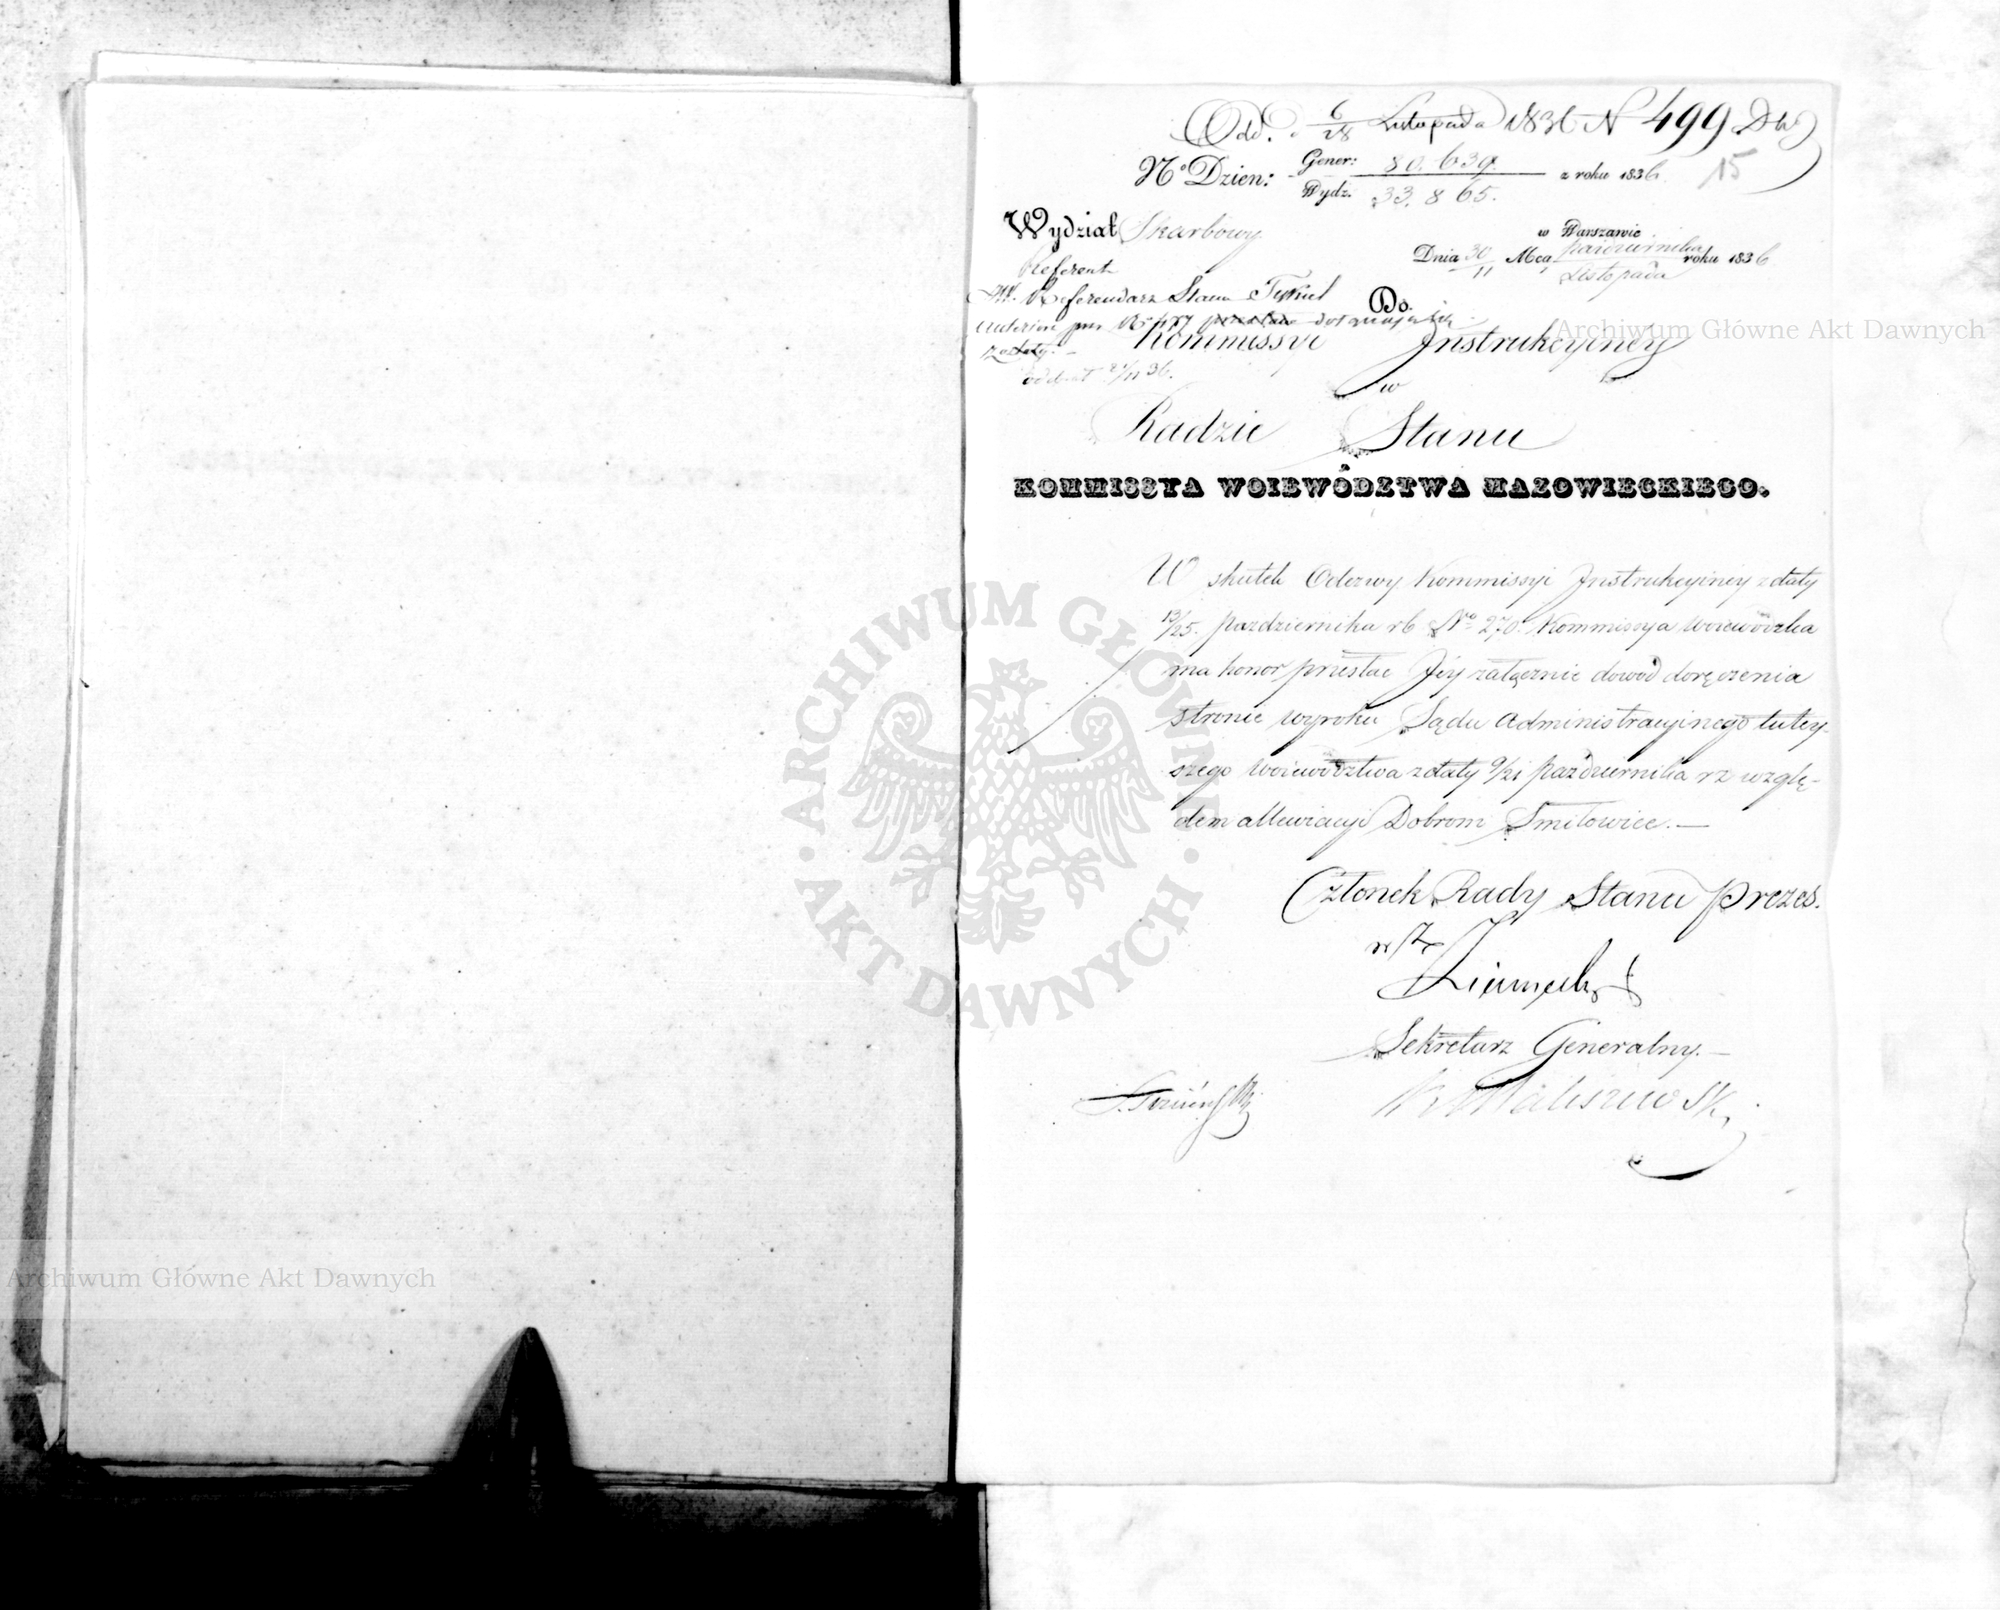 Odd. 6/28 Listopada 1836 N 499 Dz
15
No Dzien: Gener: 80.639. z roku 1836
Wydz. 33.865.
Wydział Skarbowy
w Warszawie
Dnia 30/11 Mca października/Listopada roku 1836
Referent
JW. Referendarz Stanu
Do
Kommissyi Instrukcyiney
w
Radzie Stanu
KOMMISSYA WOIEWÓDZTWA MAZOWIECKIEGO.
W skutek Odezwy Kommissyi Instrukcyiney z daty
13/25. października rb No 270. Kommissya Woiewódzka
ma honor przesłac Jey załącznie dowód doręczenia
stronie wyroku Sądu Administracyinego tutey-
szego Woiewództwa z daty 9/21 października rz wzglę-
dem allewiacyi Dobrom Smiłowice. —
Członek Rady Stanu Prezes.
w/z
Sekretarz Generalny. —
Archiwum Główne Akt Dawnych
Archiwum Główne Akt Dawnych
ARCHIWUM GŁÓWNE · AKT DAWNYCH ·